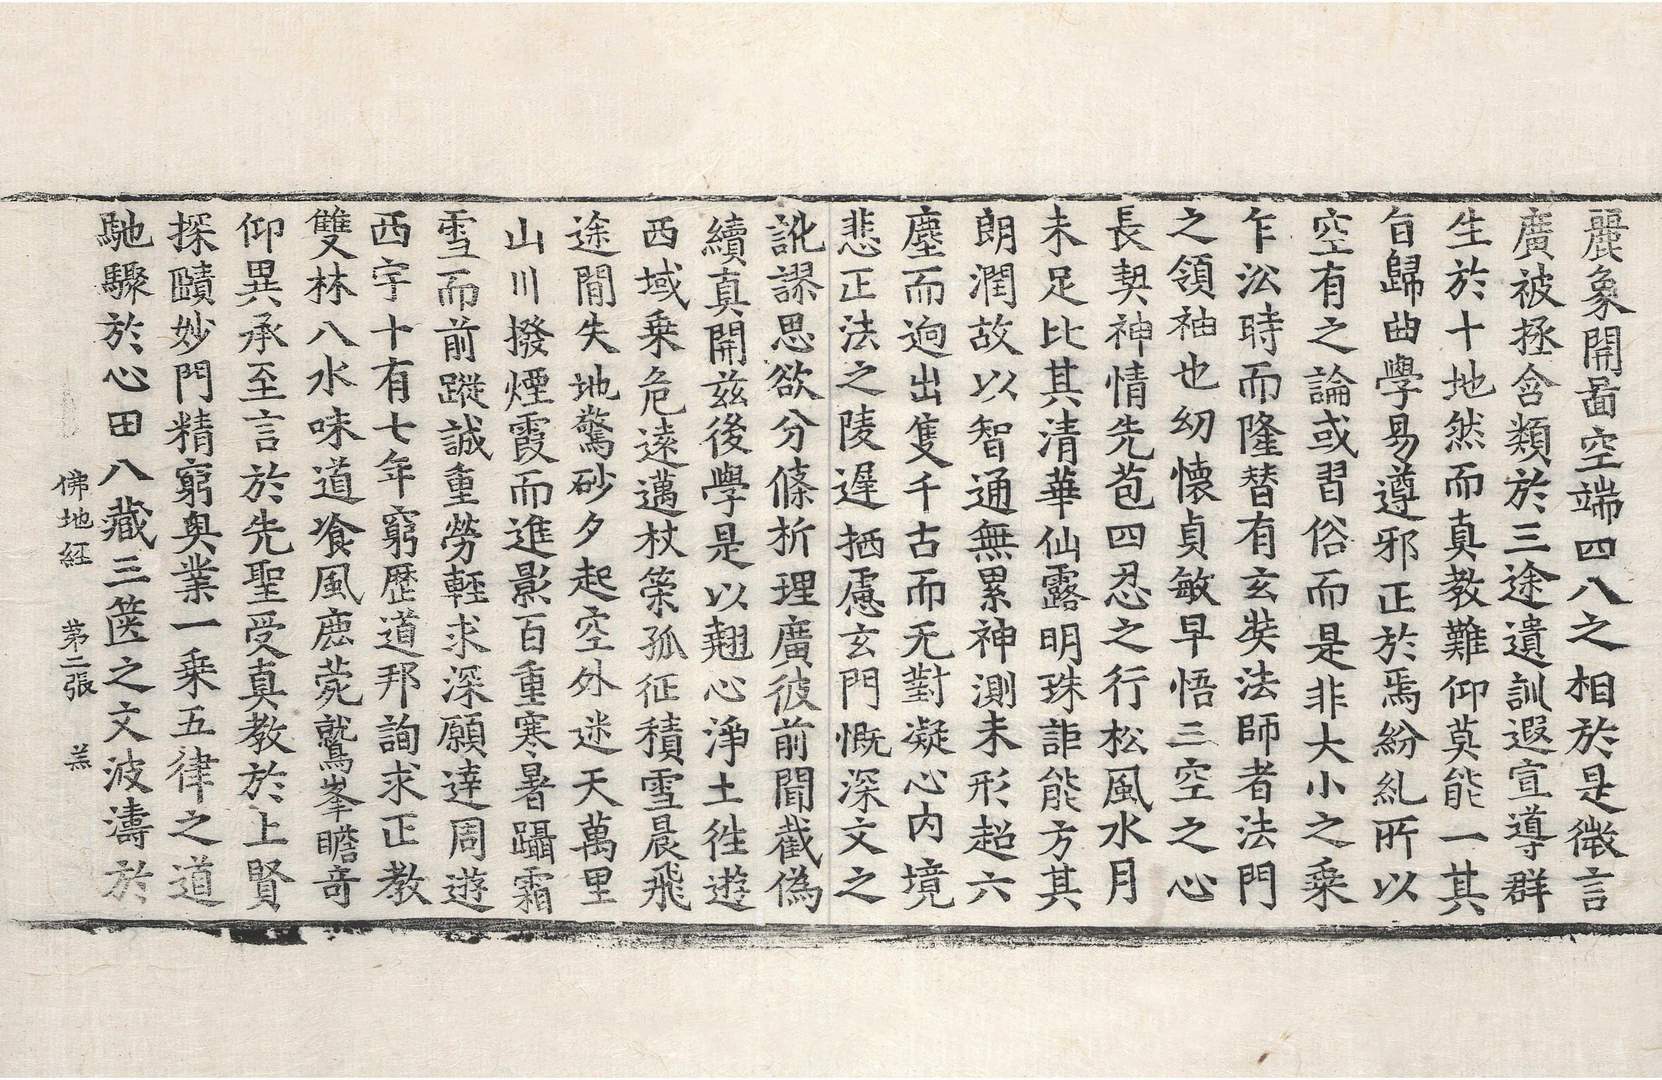 麗象開啚空端四八之相於是微言
廣被拯含類於三途遺訓遐宣導群
生於十地然而真教難仰莫能一其
旨歸曲學易遵邪正於焉紛糺所以
空有之論或習俗而是非大小之乗
乍訟時而隆替有玄奘法師者法門
之領袖也幼懷貞敏早悟三空之心
長契神情先苞四忍之行松風水月
未足比其清華仙露明珠詎能方其
朗潤故以智通無累神測未形超六
塵而逈出隻千古而无對凝心內境
悲正法之陵遲栖慮玄門慨深文之
訛謬思欲分條析理廣彼前聞截偽
續真開兹後學是以翹心淨土往遊
西域乗危遠邁杖策孤征積雪晨飛
途閒失地驚砂夕起空外迷天萬里
山川撥煙霞而進影百重寒暑躡霜
雪而前蹤誠重勞輕求深願達周遊
西宇十有七年窮歷道邦詢求正教
雙林八水味道飡風鹿菀鷲峯瞻竒
仰異承至言於先聖受真教於上賢
探賾妙門精窮奧業一乗五律之道
馳驟於心田八藏三篋之文波濤於
佛地經　第二張　羔